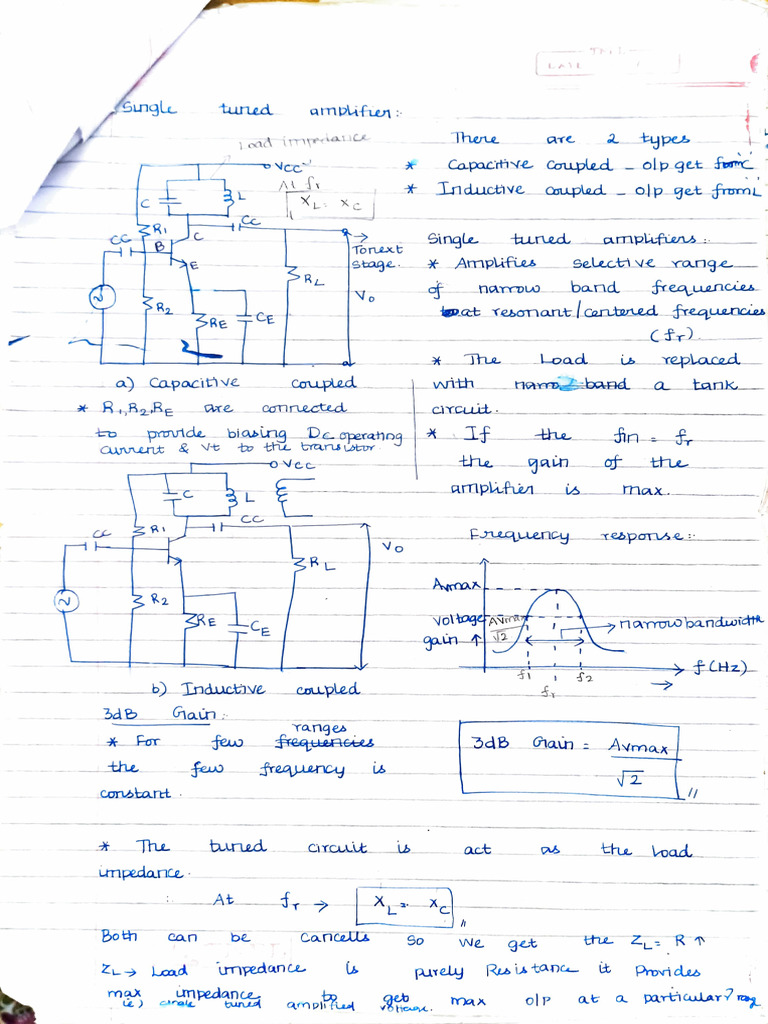 Single tuned amplifier:-
Load impedance
There are 2 types
* Capacitive coupled - o/p get from C
* Inductive coupled - o/p get from L
VCC
At fr
XL = XC
C
L
CC
R1
CC
B
C
E
R2
RE
CE
RL
To next
stage.
Vo
Single tuned amplifiers:-
* Amplifies selective range
of narrow band frequencies
at resonant/centered frequencies
(fr).
* The Load is replaced
with narrow band a tank
circuit.
* If the fin = fr
the gain of the
amplifier is max.
a) Capacitive coupled
* R1,R2,RE are connected
to provide biasing Dc operating
current & Vt to the transistor.
VCC
C
L
CC
R1
CC
R2
RE
CE
RL
Vo
b) Inductive coupled
Frequency response:-
Avmax
Voltage
gain ↑
AVmax
√2
narrow bandwidth
f1
fr
f2
f(Hz)
3dB Gain:
ranges
* For few frequencies
the few frequency is
constant.
3dB Gain = Avmax
√2 //
* The tuned circuit is act as the Load
impedance.
At fr → XL = XC //
Both can be cancells so we get the ZL = R ↑
ZL → Load impedance is purely Resistance it Provides
max impedance to get max o/p at a particular
ie) single tuned amplified voltage.